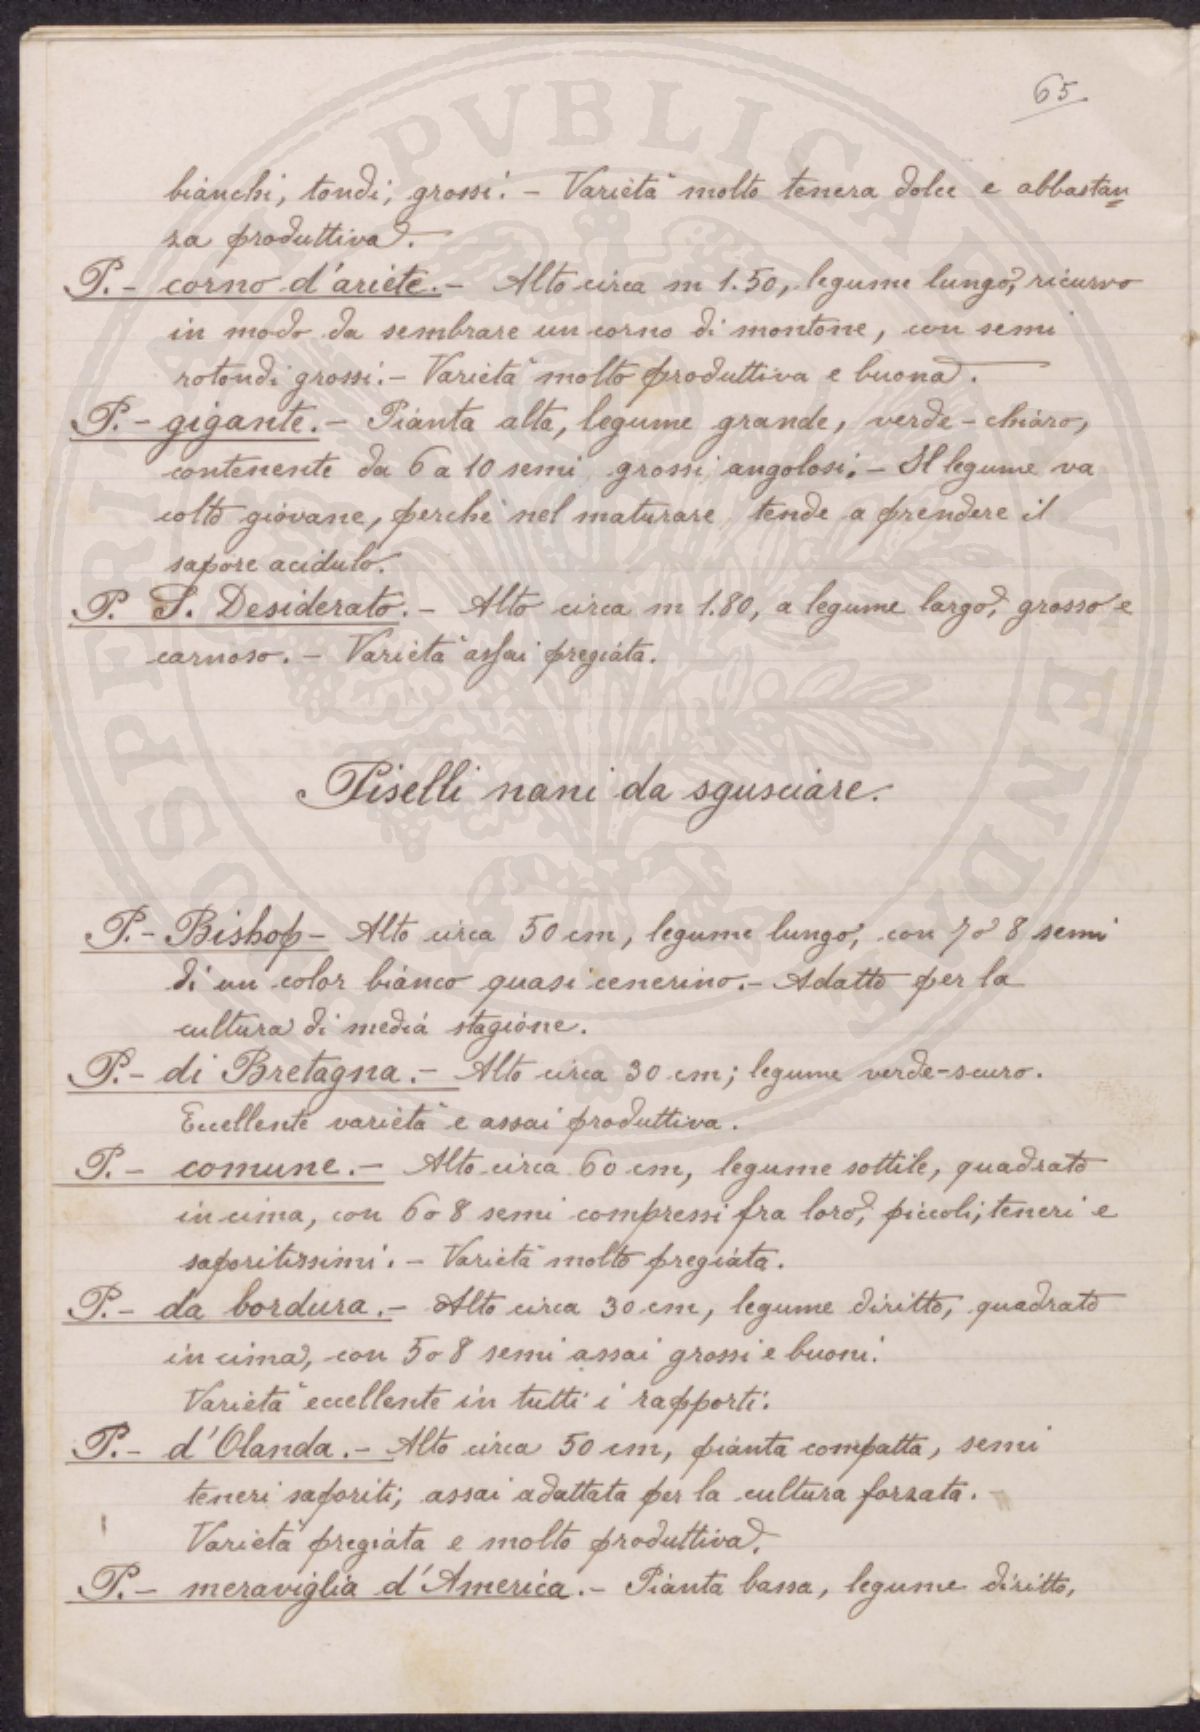 65
bianchi, tondi, grossi. - Varietà molto tenera dolce e abbastan
za produttiva. -
P. - corno d'ariete. - Alto circa m 1.50, legume lungo, ricurvo
in modo da sembrare un corno di montone, con semi
rotondi grossi. - Varietà molto produttiva e buona. -
P. - gigante. - Pianta alta, legume grande, verde-chiaro,
contenente da 6 a 10 semi grossi angolosi. - Il legume va
colto giovane, perchè nel maturare tende a prendere il
sapore acidulo.
P. S. Desiderato. - Alto circa m 1.80, a legume largo, grosso e
carnoso. - Varietà assai pregiata.
Piselli nani da sgusciare.
P. - Bishop - Alto circa 50 cm, legume lungo, con 7 o 8 semi
di un color bianco quasi cenerino. - Adatto per la
cultura di media stagione.
P. - di Bretagna. - Alto circa 30 cm; legume verde-scuro.
Eccellente varietà e assai produttiva.
P. - comune. - Alto circa 60 cm, legume sottile, quadrato
in cima, con 6 o 8 semi compressi fra loro, piccoli, teneri e
saporitissimi. - Varietà molto pregiata.
P. - da bordura. - Alto circa 30 cm, legume diritto, quadrato
in cima, con 5 o 8 semi assai grossi e buoni.
Varietà eccellente in tutti i rapporti.
P. - d'Olanda. - Alto circa 50 cm, pianta compatta, semi
teneri saporiti; assai adattata per la cultura forzata. -
Varietà pregiata e molto produttiva.
P. - meraviglia d'America. - Pianta bassa, legume diritto,